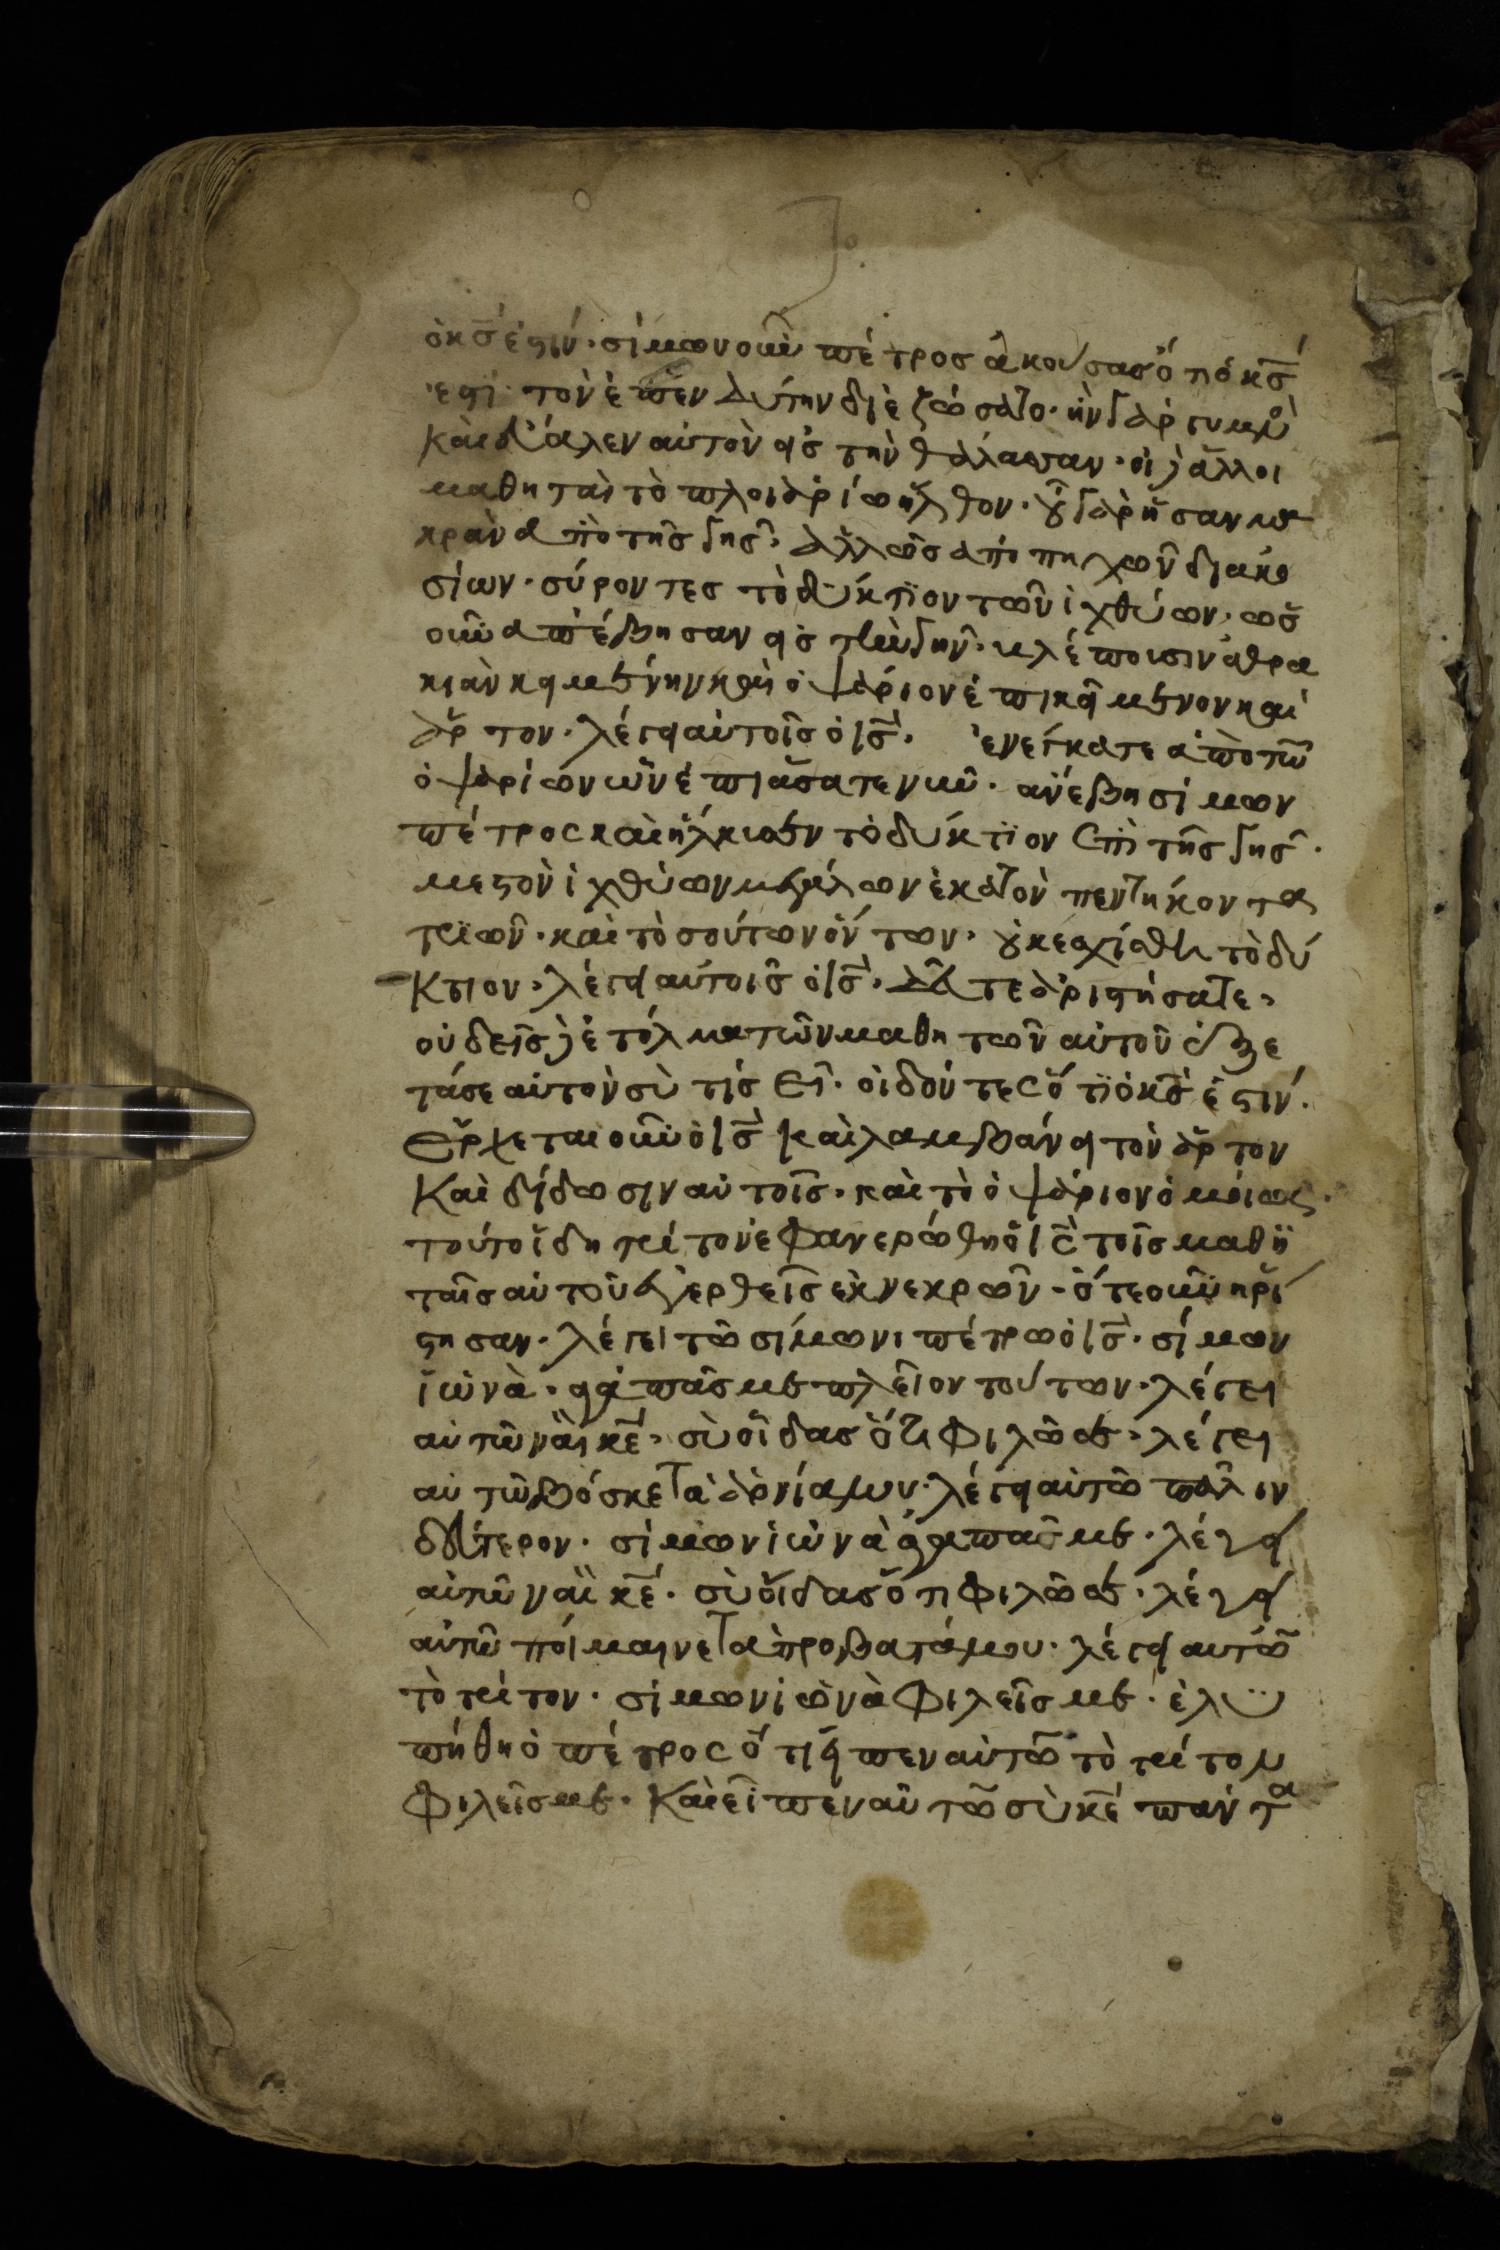 ὁ κς ἐστιν· σίμων οὖν πέτρος ἀκούσας ὅτι ὁ κς
ἐστι· τὸν ἐπενδύτην διεζώσατο· ἦν γὰρ γυμνὸ
καὶ ἔβαλεν αὐτὸν εἰς τὴν θάλασσαν· οἱ δὲ ἄλλοι
μαθηταὶ τὸ πλοιαρίω ἦλθον· οὐ γὰρ ἦσαν μα
κρὰν ἀπὸ τῆς γῆς· ἀλλ ὡς ἀπὸ πηχῶν διακο
σίων· σύροντες τὸ δύκτϊον τῶν ἰχθύων· ὡς
οὖν ἀπέβησαν εἰς τὴν γῆν· βλέπουσιν ἀθρα
κιὰν κειμένην καὶ ὀψάριον ἐπικείμενον καὶ
ἄρτον· λέγει αὐτοῖς ὁ ις· ἐνέγκατε ἀπὸ τῶν
ὀψαρίων ὧν ἐπιάσατε νῦν· ἀνέβη σίμων
πέτρος καὶ ἥλκυσεν τὸ δύκτϊον ἐπὶ τῆς γῆς·
μεστὸν ἰχθύων μεγάλων ἑκατὸν πεντήκοντα
τριῶν· καὶ τοσούτων ὄντων· οὐκ ἐσχίσθη τὸ δύ
κτιον· λέγει αὐτοῖς ὁ ις· δεῦτε ἀριστήσατε·
οὐδεῖς δὲ ἐτόλμα τῶν μαθητῶν αὐτοῦ ἐξε
τάσε αὐτὸν σὺ τίς εἶ· οἰδότες ὅτϊ ὁ κς ἐστιν·
ἔρχεται οὖν ὁ ις καὶ λαμβάνει τὸν ἄρτον
καὶ δίδωσιν αὐτοῖς· καὶ τὸ ὀψάριον ὁμοίως·
τοῦτο ἤδη τρίτον ἐφανερώθη ὁ ις τοῖς μαθη
ταῖς αὐτοῦ ἐγερθεὶς ἐκ νεκρῶν· ὅτε οὖν ἠρί
στησαν· λέγει τῶ σίμωνι πέτρω ὁ ις· σίμων
ἰωνὰ· ἀγαπᾶς με πλεῖον τούτων· λέγει
αὐτῶ ναὶ κε· σὺ οἶδας ὅτι φιλῶ σε· λέγει
αὐτῶ βόσκε τὰ ἀρνία μου· λέγει αὐτῶ πάλιν
δεύτερον· σίμων ἰωνὰ ἀγαπᾶς με· λέγει
αὐτῶ ναὶ κε· σὺ οἶδας ὅτι φιλῶ σε· λέγει
αὐτῶ ποίμαινε τὰ πρόβατά μου· λέγει αὐτῶ
τὸ τρίτον· σίμων ἰωνὰ φιλεῖς με· ἐλυ
πήθη ὁ πέτρος ὅτι εἶπεν αὐτῶ τὸ τρίτον
φιλεῖς με· καὶ εἶπεν αὐτῶ σὺ κε πάντα